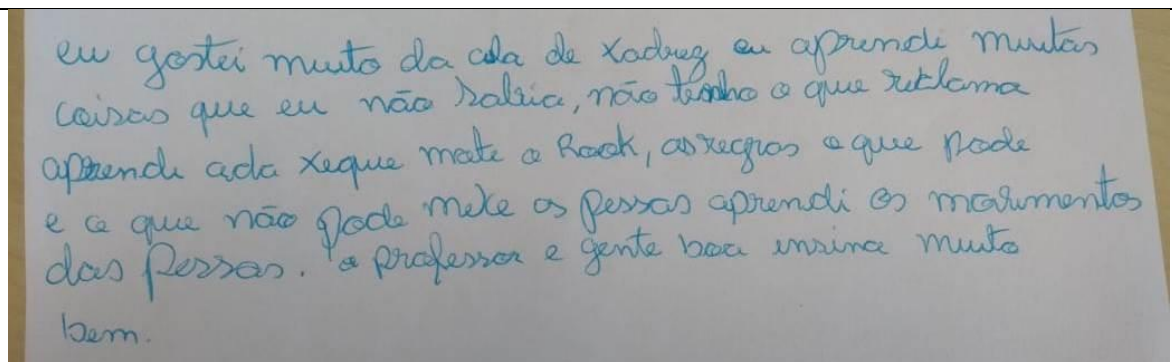 eu gostei muito da ala de xadrez eu aprendi muitas
coisas que eu não sabia, não tenho o que reklama
aprendi a da xeque mate o Rook, as regras o que pode
e o que não pode mexe as pessas aprendi os movimentos
das pessas. o professor e gente boa insina muito
bem.